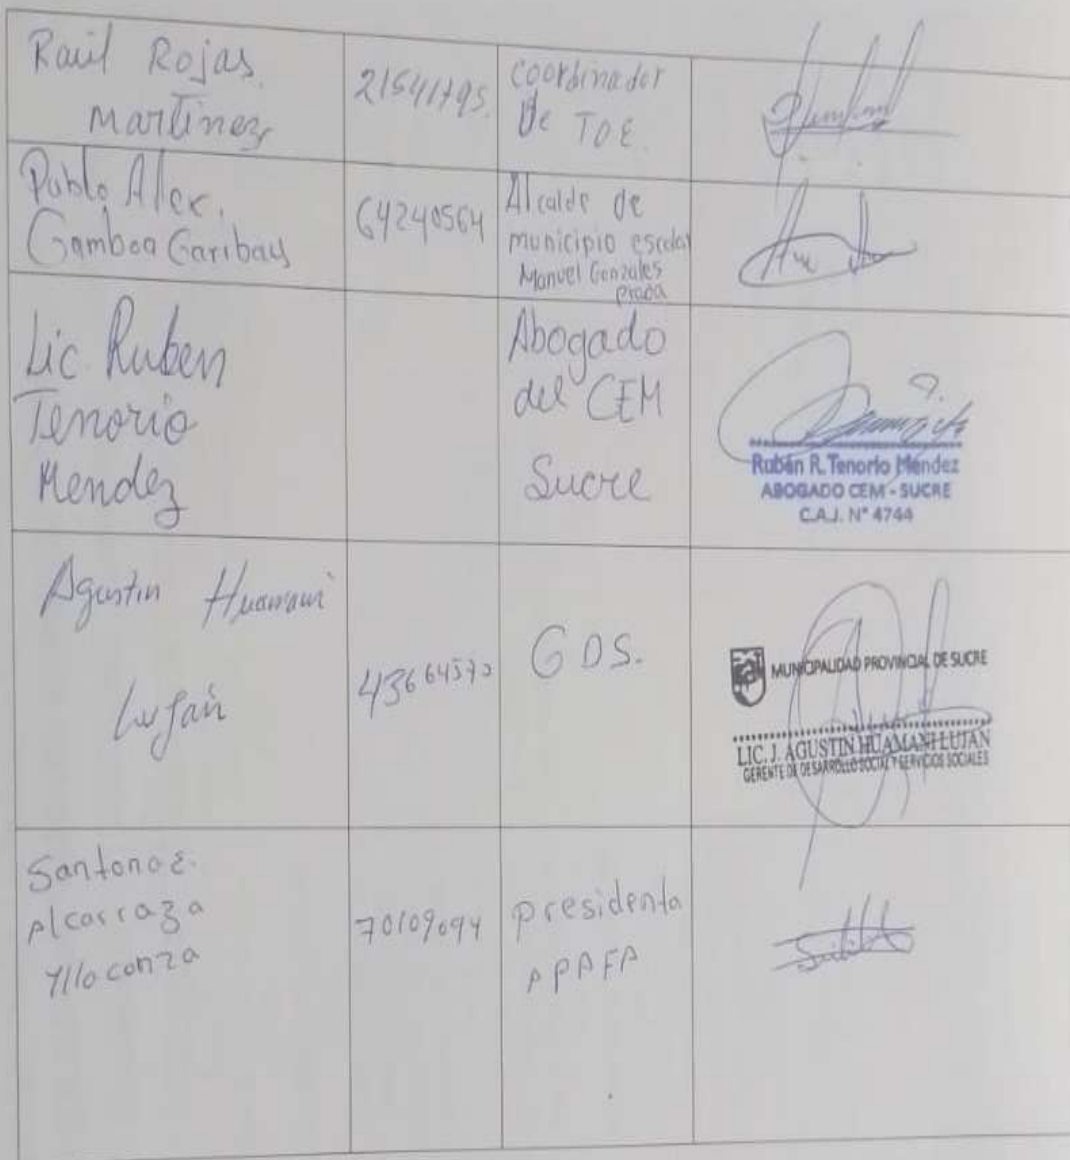 Raúl Rojas
Martinez
21541795
Coordinador
De TOE.
Pablo Alex.
Gamboa Garibay
64240564
Alcalde de
municipio escolar
Manuel Gonzales
prada
Lic. Ruben
Tenorio
Mendez
Abogado
del CEM
Sucre
Rubén R. Tenorio Méndez
ABOGADO CEM - SUCRE
C.A.J. N° 4744
Agustin Huamani
Luján
43664570
GDS.
MUNICIPALIDAD PROVINCIAL DE SUCRE
LIC. J. AGUSTIN HUAMANI LUJAN
GERENTE DE DESARROLLO SOCIAL Y SERVICIOS SOCIALES
Santona E.
Alcarraza
Ylloconza
70109694
presidenta
APAFA